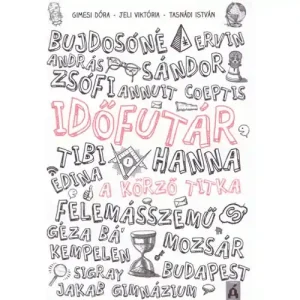 GIMESI DÓRA - JELI VIKTÓRIA - TASNÁDI ISTVÁN
BUJDOSÓNÉ ERVIN
ANDRÁS SÁNDOR
ZSÓFI ANNUIT COEPTIS
IDŐFUTÁR
TIBI HANNA
EDINA A KÖRZŐ TITKA
FELEMÁSSZEMŰ
GÉZA BÁ' MOZSÁR
KEMPELEN BUDAPEST
SIGRAY
JAKAB GIMNÁZIUM